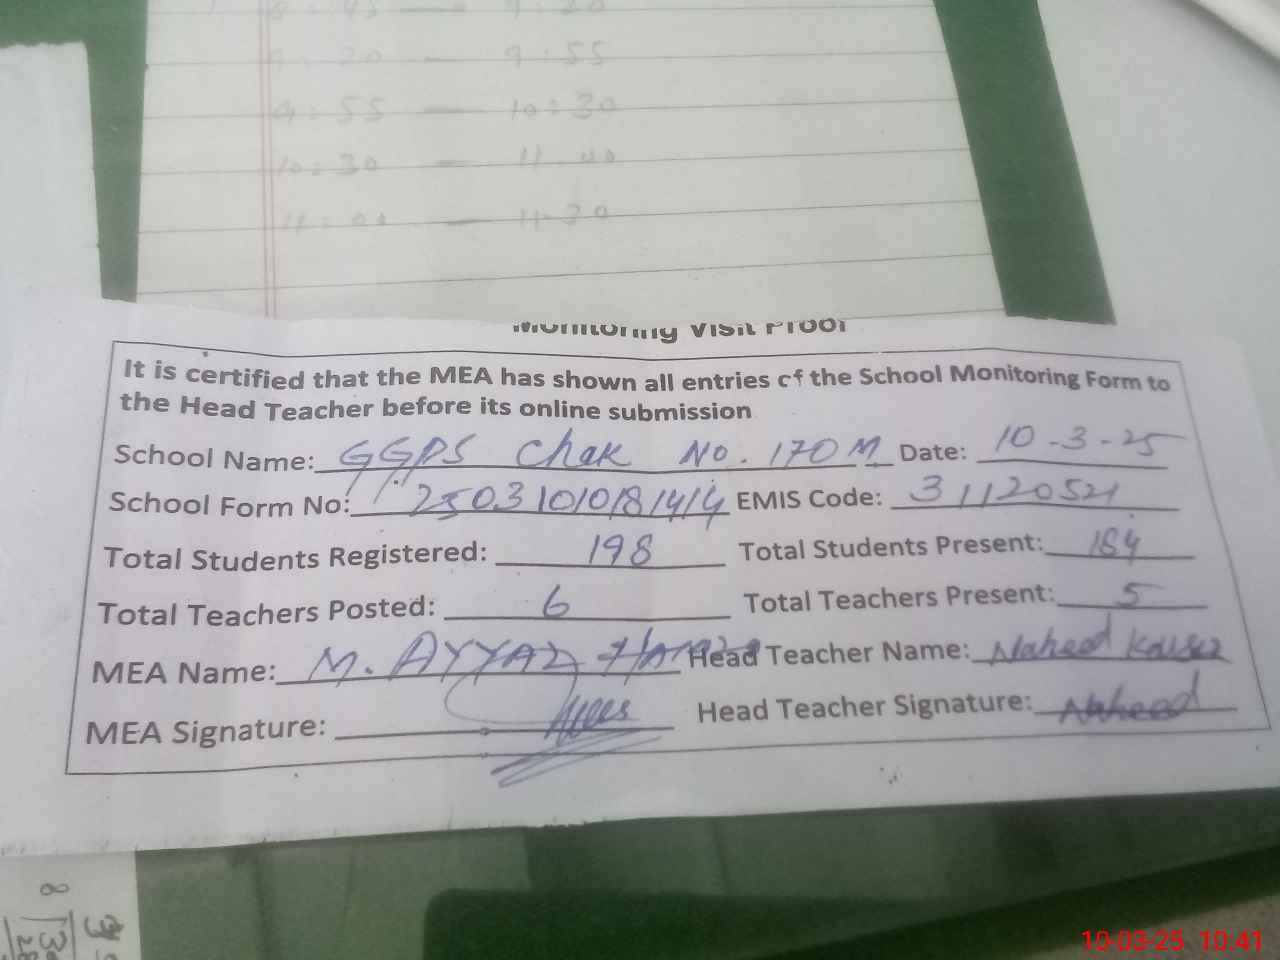 9:20 — 9:55
9:55 — 10:30
10:30 — 11:00
11:00 — 11:30
Monitoring Visit Proof
It is certified that the MEA has shown all entries of the School Monitoring Form to
the Head Teacher before its online submission
School Name: GGPS Chak No. 170M Date: 10-3-25
School Form No: EMIS Code: 31120521
Total Students Registered: 198 Total Students Present: 184
Total Teachers Posted: 6 Total Teachers Present: 5
MEA Name: M. AYYAZ Head Teacher Name: Naheed Kausar
MEA Signature: Head Teacher Signature: Naheed
10-03-25 10:41